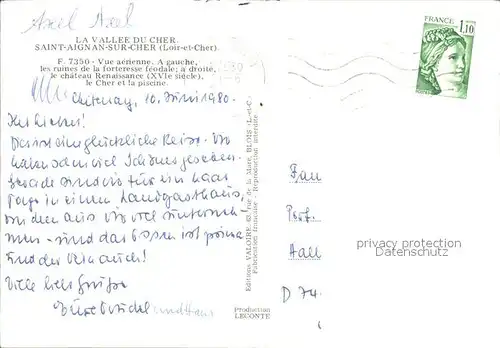 Axel Axel
LA VALLEE DU CHER
SAINT-AIGNAN-SUR-CHER (Loir-et-Cher)
F. 7350 - Vue aérienne. A gauche,
les ruines de la forteresse féodale; à droite,
le château Renaissance (XVIe siècle),
le Cher et la piscine.
FRANCE
1,10
Chitenay, 10. Juni 1980.
Ihr Lieben!
Das ist eine glückliche Reise. Wir
haben schon viel Schönes gesehen.
Gerade sind wir für ein paar
Tage in einem Landgasthaus,
von dem aus wir viel unterneh-
men - und das Essen ist prima
und der Wein auch!
Viele liebe Grüße
und Hans
Editions VALOIRE, rue de la Mare, BLOIS (L.-et-C.)
Fabrication française - Reproduction interdite
Production
LECONTE
Frau
Prof.
Hall
D 74
privacy protection
Datenschutz